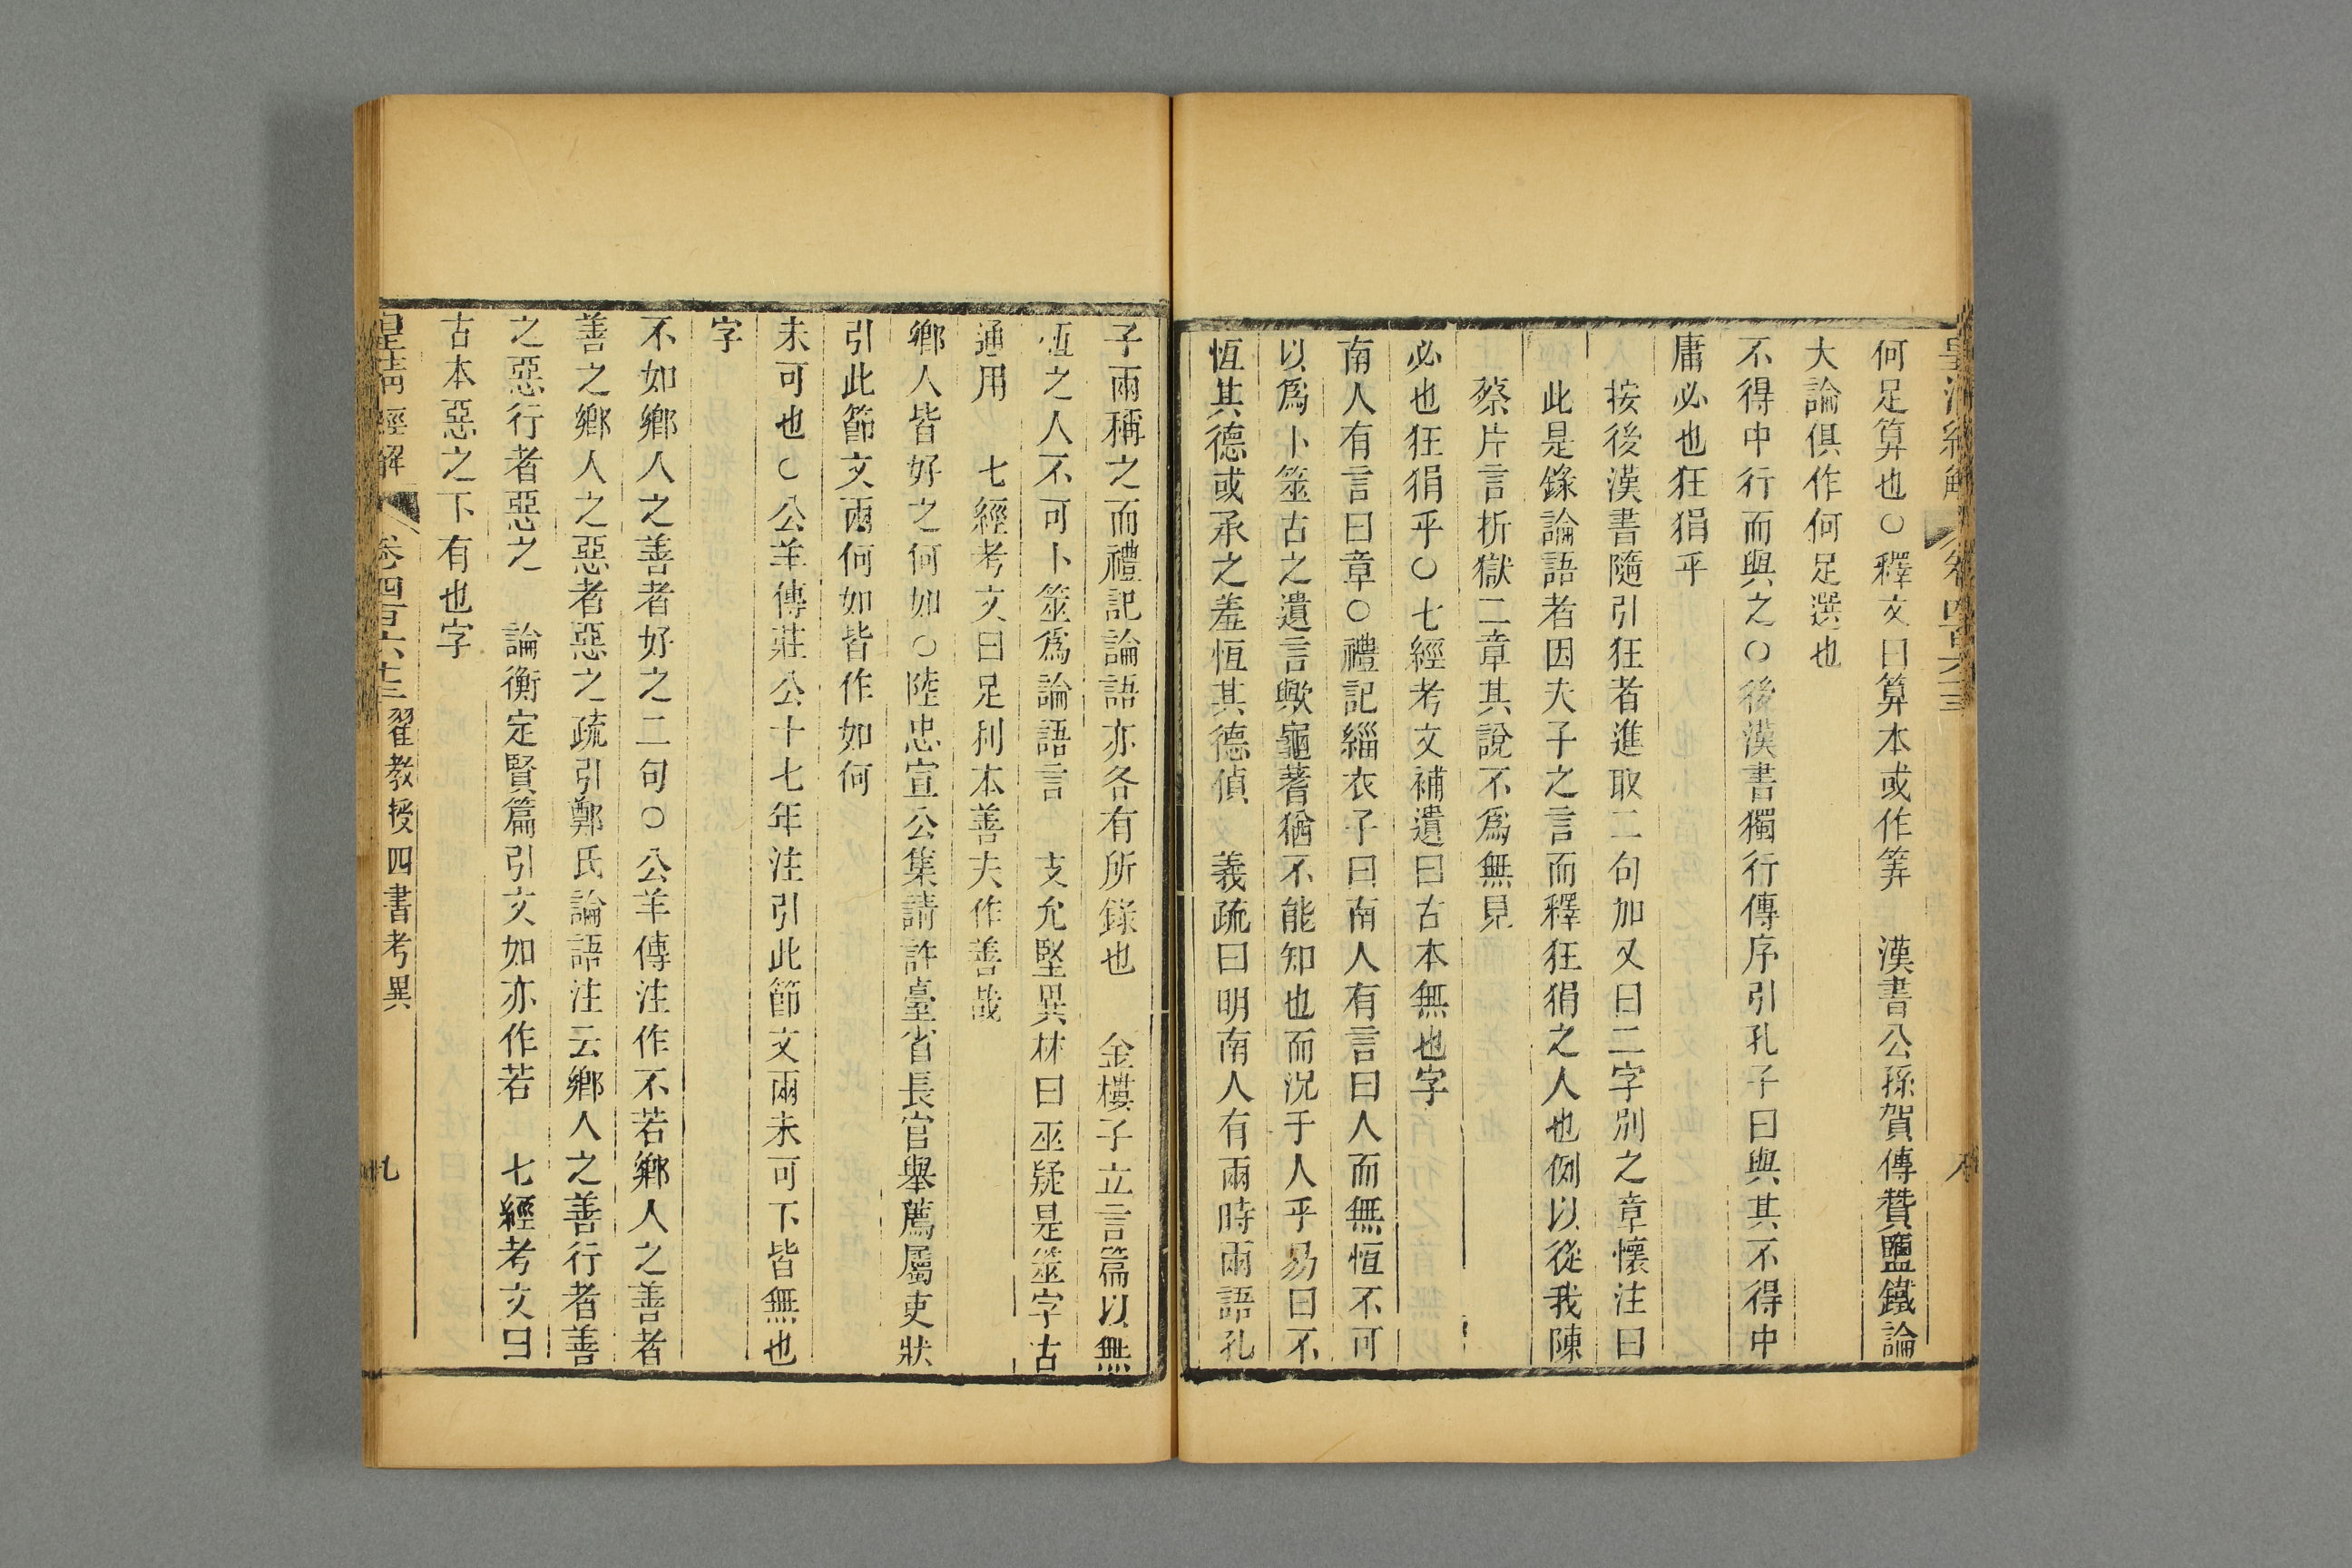 何足算也○釋文曰算本或作筭　漢書公孫賀傳贊鹽鐵論
大論俱作何足選也
不得中行而與之○後漢書獨行傳序引孔子曰與其不得中
庸必也狂狷乎
按後漢書隨引狂者進取二句加又曰二字別之章懷注曰
此是錄論語者因夫子之言而釋狂狷之人也例以從我陳
蔡片言折獄二章其說不爲無見
必也狂狷乎○七經考文補遺曰古本無也字
南人有言曰章○禮記緇衣子曰南人有言曰人而無恆不可
以爲卜筮古之遺言歟龜蓍猶不能知也而況于人乎易曰不
恆其德或承之羞恆其德偵　義疏曰明南人有兩時兩語孔
子兩稱之而禮記論語亦各有所錄也　金樓子立言篇以無
恆之人不可卜筮爲論語言　支允堅異林曰巫疑是筮字古
通用　七經考文曰足利本善夫作善哉
鄉人皆好之何如○陸忠宣公集請許臺省長官舉薦屬吏狀
引此節文兩何如皆作如何
未可也○公羊傳莊公十七年注引此節文兩未可下皆無也
字
不如鄉人之善者好之二句○公羊傳注作不若鄉人之善者
善之鄉人之惡者惡之疏引鄭氏論語注云鄉人之善行者善
之惡行者惡之　論衡定賢篇引文如亦作若　七經考文曰
古本惡之下有也字
皇清經解　卷四百六十三　翟教授四書考異　九